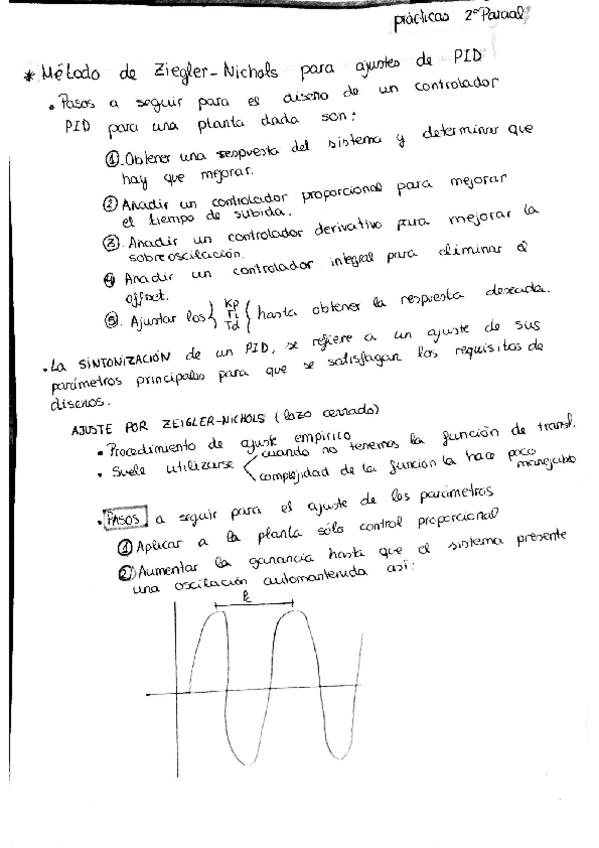 prácticas 2º Parcial
* Método de Ziegler-Nichols para ajustes de PID
• Pasos a seguir para el diseño de un controlador
PID para una planta dada son:
①. Obtener una respuesta del sistema y determinar que
hay que mejorar.
② Añadir un controlador proporcional para mejorar
el tiempo de subida.
③. Anadir un controlador derivativo para mejorar la
sobreoscilación.
④ Anadir un controlador integral para eliminar el
offset.
⑤. Ajustar los { Kp Ti Td { hasta obtener la respuesta deseada.
• La SINTONIZACIÓN de un PID, se refiere a un ajuste de sus
parámetros principales para que se satisfagan los requisitos de
diseños.
AJUSTE POR ZEIGLER-NICHOLS (lazo cerrado)
• Procedimiento de ajuste empírico
• Suele utilizarse < cuando no tenemos la función de transf.
complejidad de la función la hace poco
manejable
• PASOS a seguir para el ajuste de los parámetros
① Aplicar a la planta sólo control proporcional
② Aumentar la ganancia hasta que el sistema presente
una oscilación automantenida así: